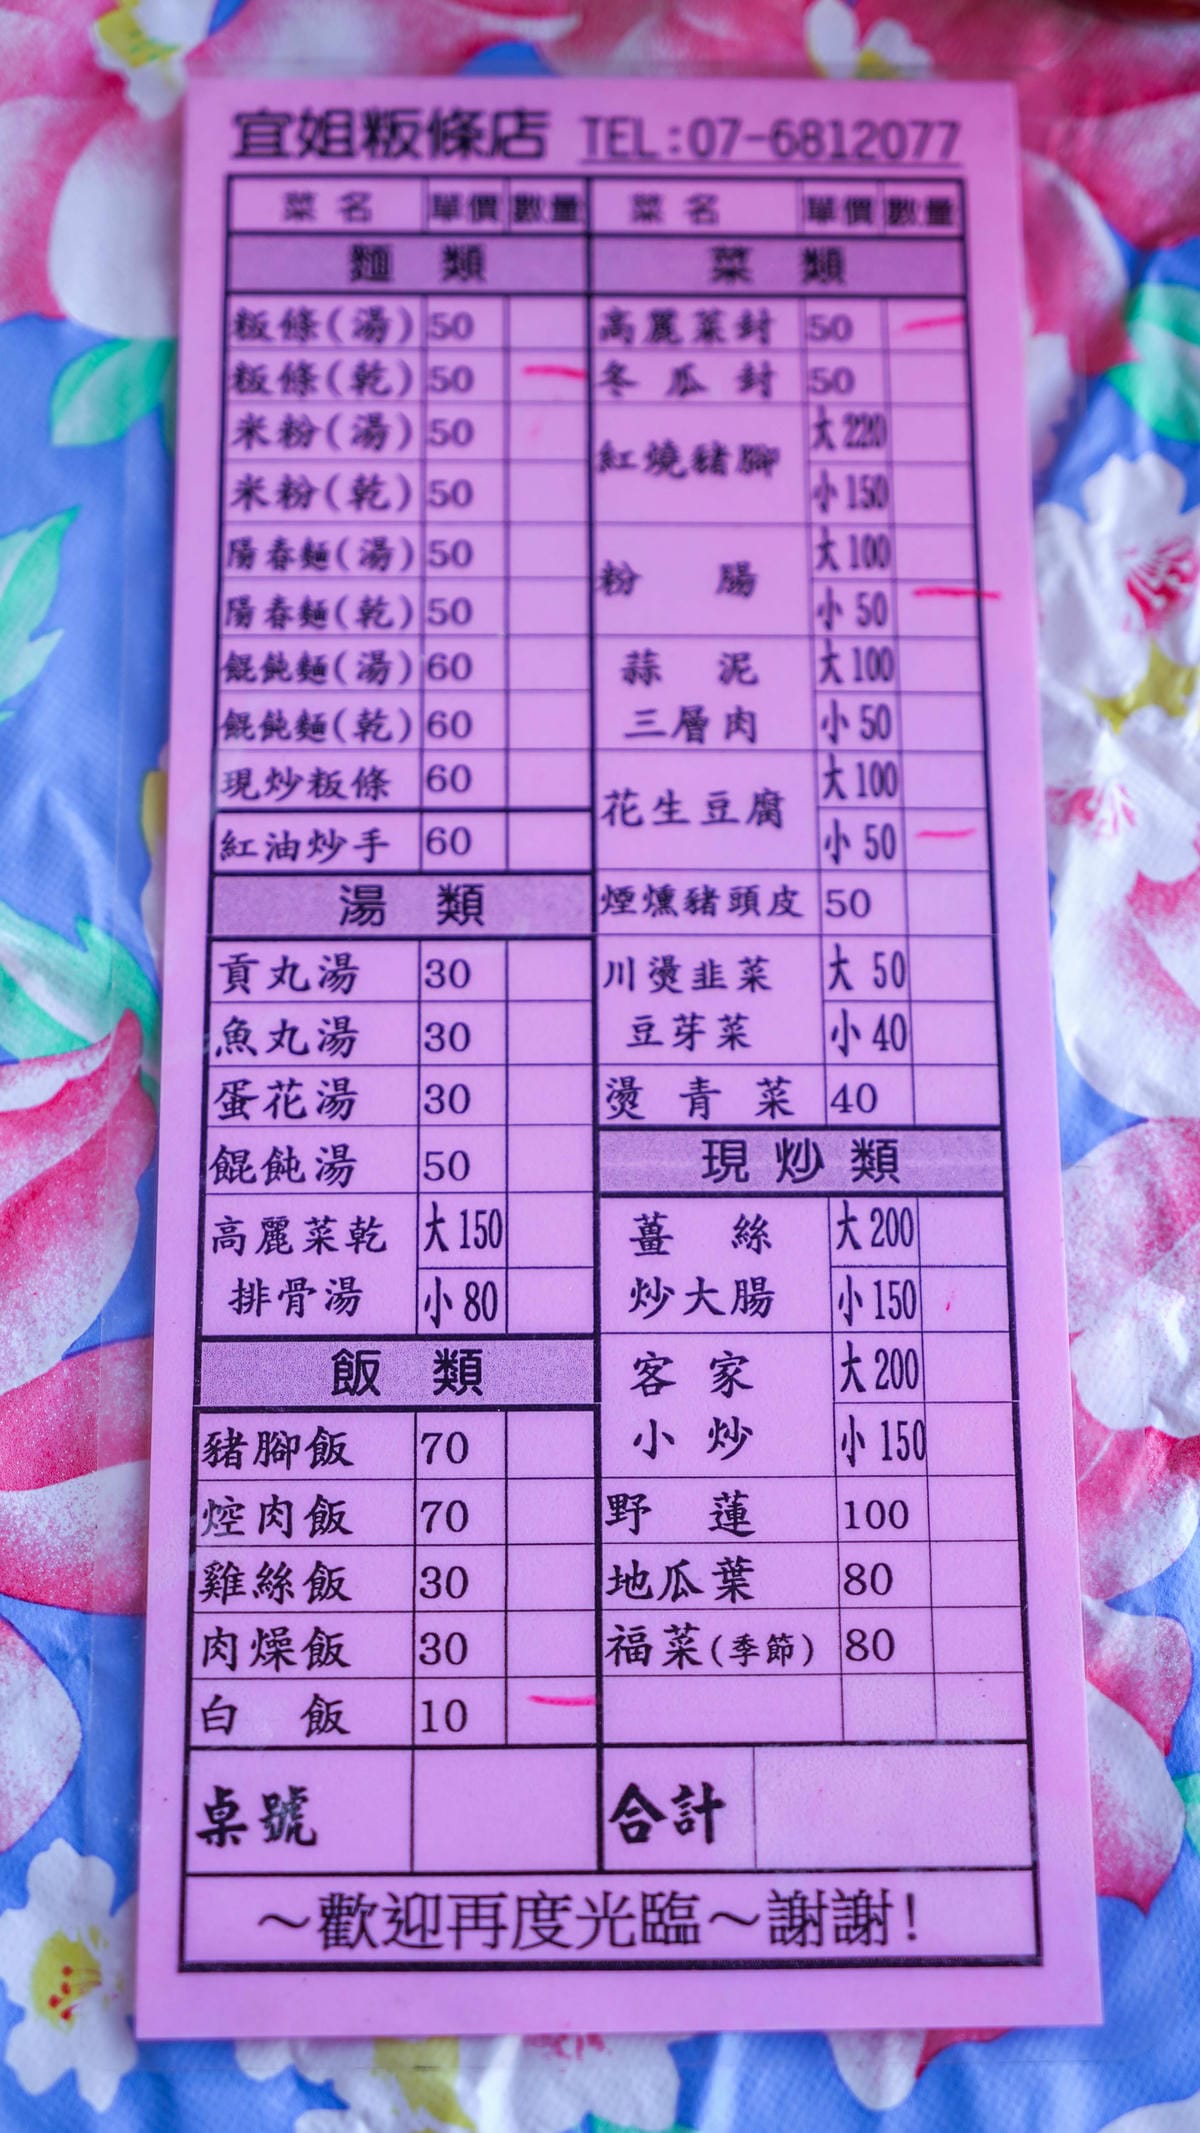 宜姐粄條店 TEL:07-6812077
菜名 單價 數量
麵類
粄條(湯) 50
粄條(乾) 50
米粉(湯) 50
米粉(乾) 50
陽春麵(湯) 50
陽春麵(乾) 50
餛飩麵(湯) 60
餛飩麵(乾) 60
現炒粄條 60
紅油炒手 60
湯類
貢丸湯 30
魚丸湯 30
蛋花湯 30
餛飩湯 50
高麗菜乾 大150
排骨湯 小80
飯類
豬腳飯 70
焢肉飯 70
雞絲飯 30
肉燥飯 30
白飯 10
桌號
菜名 單價 數量
菜類
高麗菜封 50
冬瓜封 50
紅燒豬腳 大220
小150
粉腸 大100
小50
蒜泥 大100
三層肉 小50
花生豆腐 大100
小50
煙燻豬頭皮 50
川燙韭菜 大50
豆芽菜 小40
燙青菜 40
現炒類
薑絲 大200
炒大腸 小150
客家 大200
小炒 小150
野蓮 100
地瓜葉 80
福菜(季節) 80
合計
～歡迎再度光臨～謝謝!